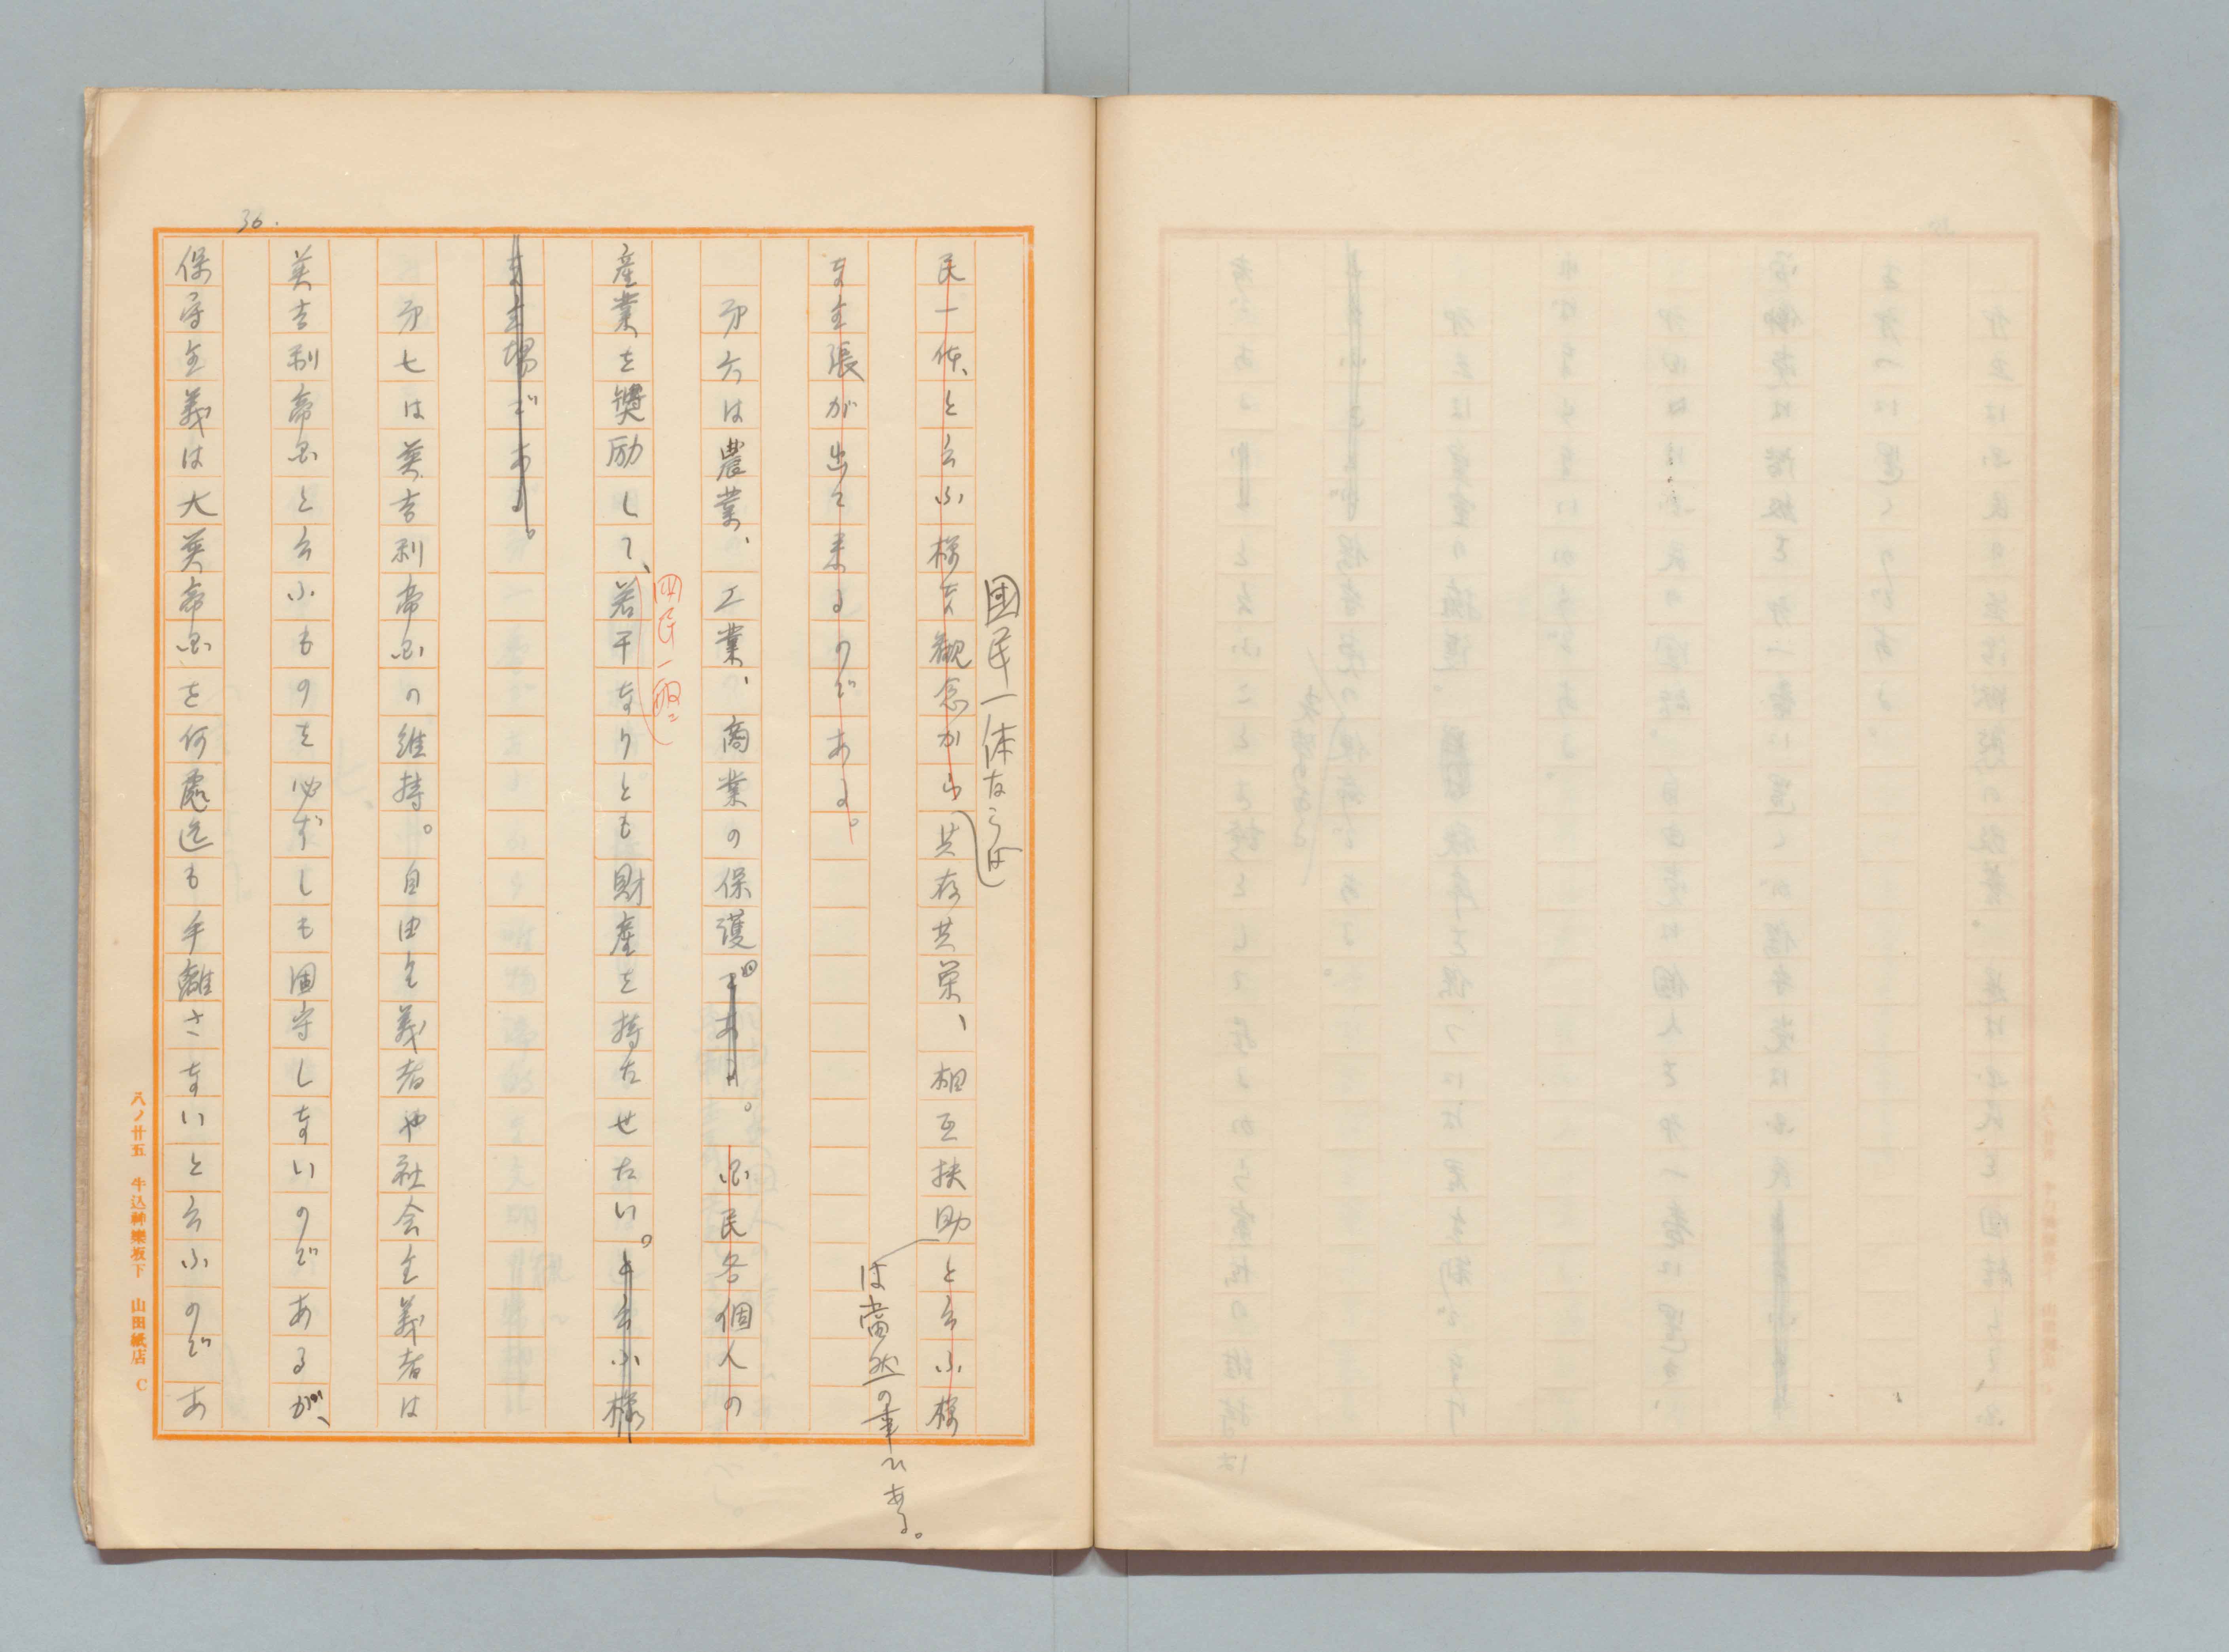 36.
國民一体ならば
民一体、と云ふ様な観念から共存共栄、相互扶助と云ふ様
は當然の事である。
な主張が出て来るのである。
第六は農業、工業、商業の保護である。国民各個人の
四民一般に
産業を奨励して、若干なりとも財産を持たせたい。と云ふ様
な立場である。
第七は英吉利帝国の維持。自由主義者や社会主義者は
英吉利帝国と云ふものを必ずしも固守しないのであるが、
保守主義は大英帝国を何處迄も手離さないと云ふのであ
八ノ廿五 牛込神樂坂下 山田紙店 C